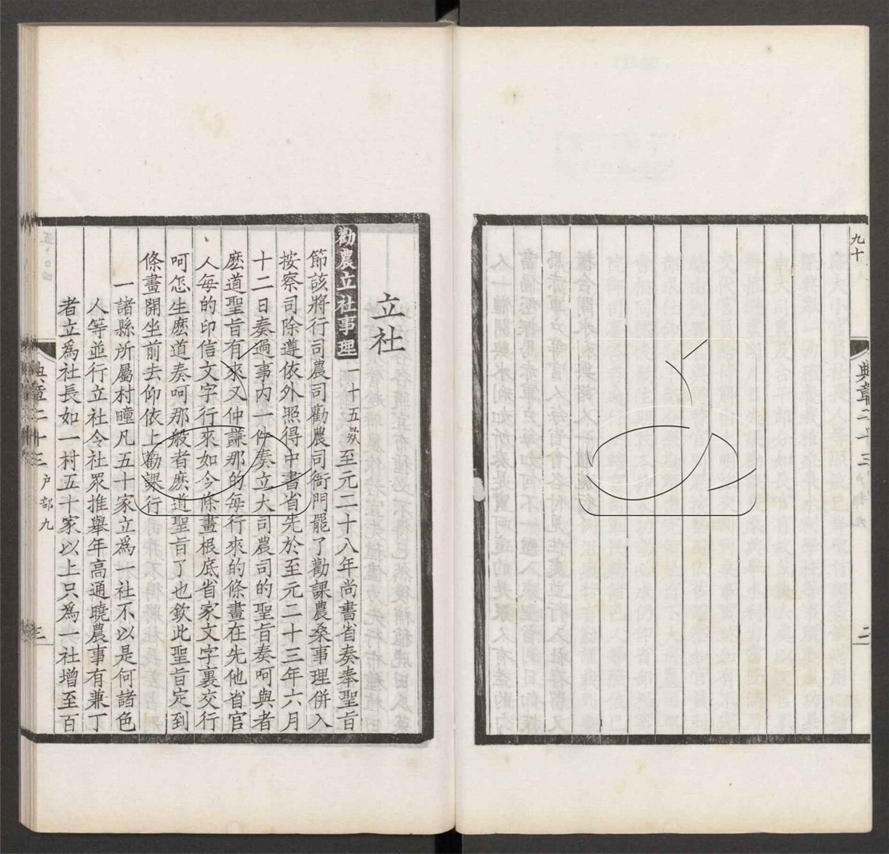 九十
典章二十三 户部九 二
立社
勸農立社事理 一十五欵 至元二十八年尚書省奏奉聖旨
節該將行司農司勸農司衙門罷了勸課農桑事理併入
按察司除遵依外照得中書省先於至元二十三年六月
十二日奏過事内一件奏立大司農司的聖旨奏呵與者
麽道聖旨有來又仲謙那的每行來的條畫在先他省官
人每的印信文字行來如今條畫根底省家文字裏交行
呵怎生麽道奏呵那般者麽道聖旨了也欽此聖旨定到
條畫開坐前去仰依上勸課行
一諸縣所屬村疃凡五十家立爲一社不以是何諸色
人等並行立社令社衆推舉年高通曉農事有兼丁
者立爲社長如一村五十家以上只爲一社增至百
典章二十三 户部九 三